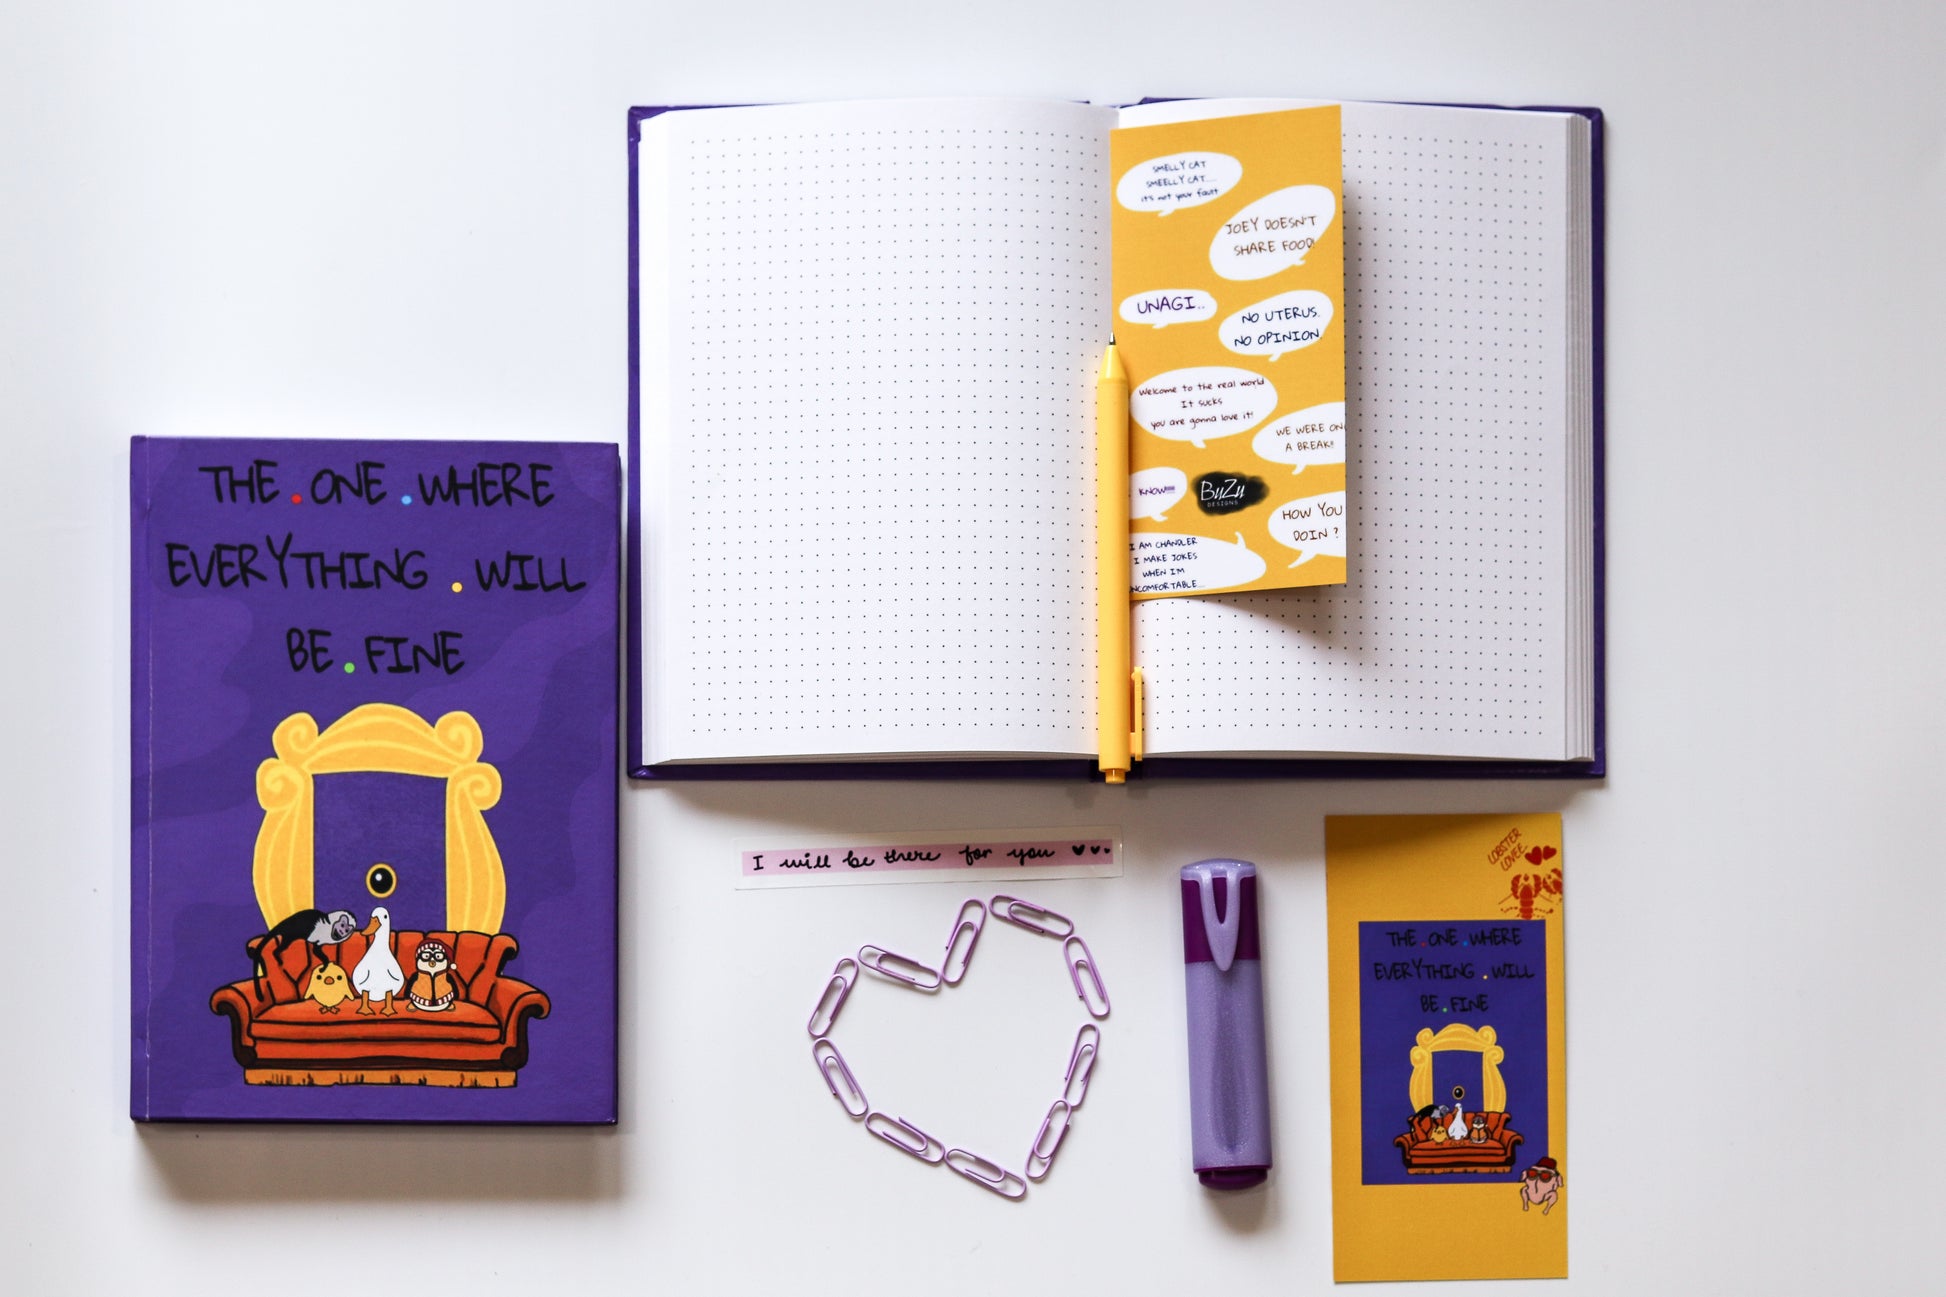 THE.ONE.WHERE
EVERYTHING.WILL
BE.FINE
SMELLY CAT
SMEELLY CAT.....
it's not your fault
JOEY DOESN'T
SHARE FOOD!
UNAGI..
NO UTERUS.
NO OPINION.
Welcome to the real world
It sucks
you are gonna love it!
WE WERE ON
A BREAK!!
KNOW!!!!!
BuZu
DESIGNS
HOW YOU
DOIN ?
I AM CHANDLER
I MAKE JOKES
WHEN I'M
UNCOMFORTABLE....
I will be there for you
LOBSTER
LOVEE
THE.ONE.WHERE
EVERYTHING.WILL
BE.FINE